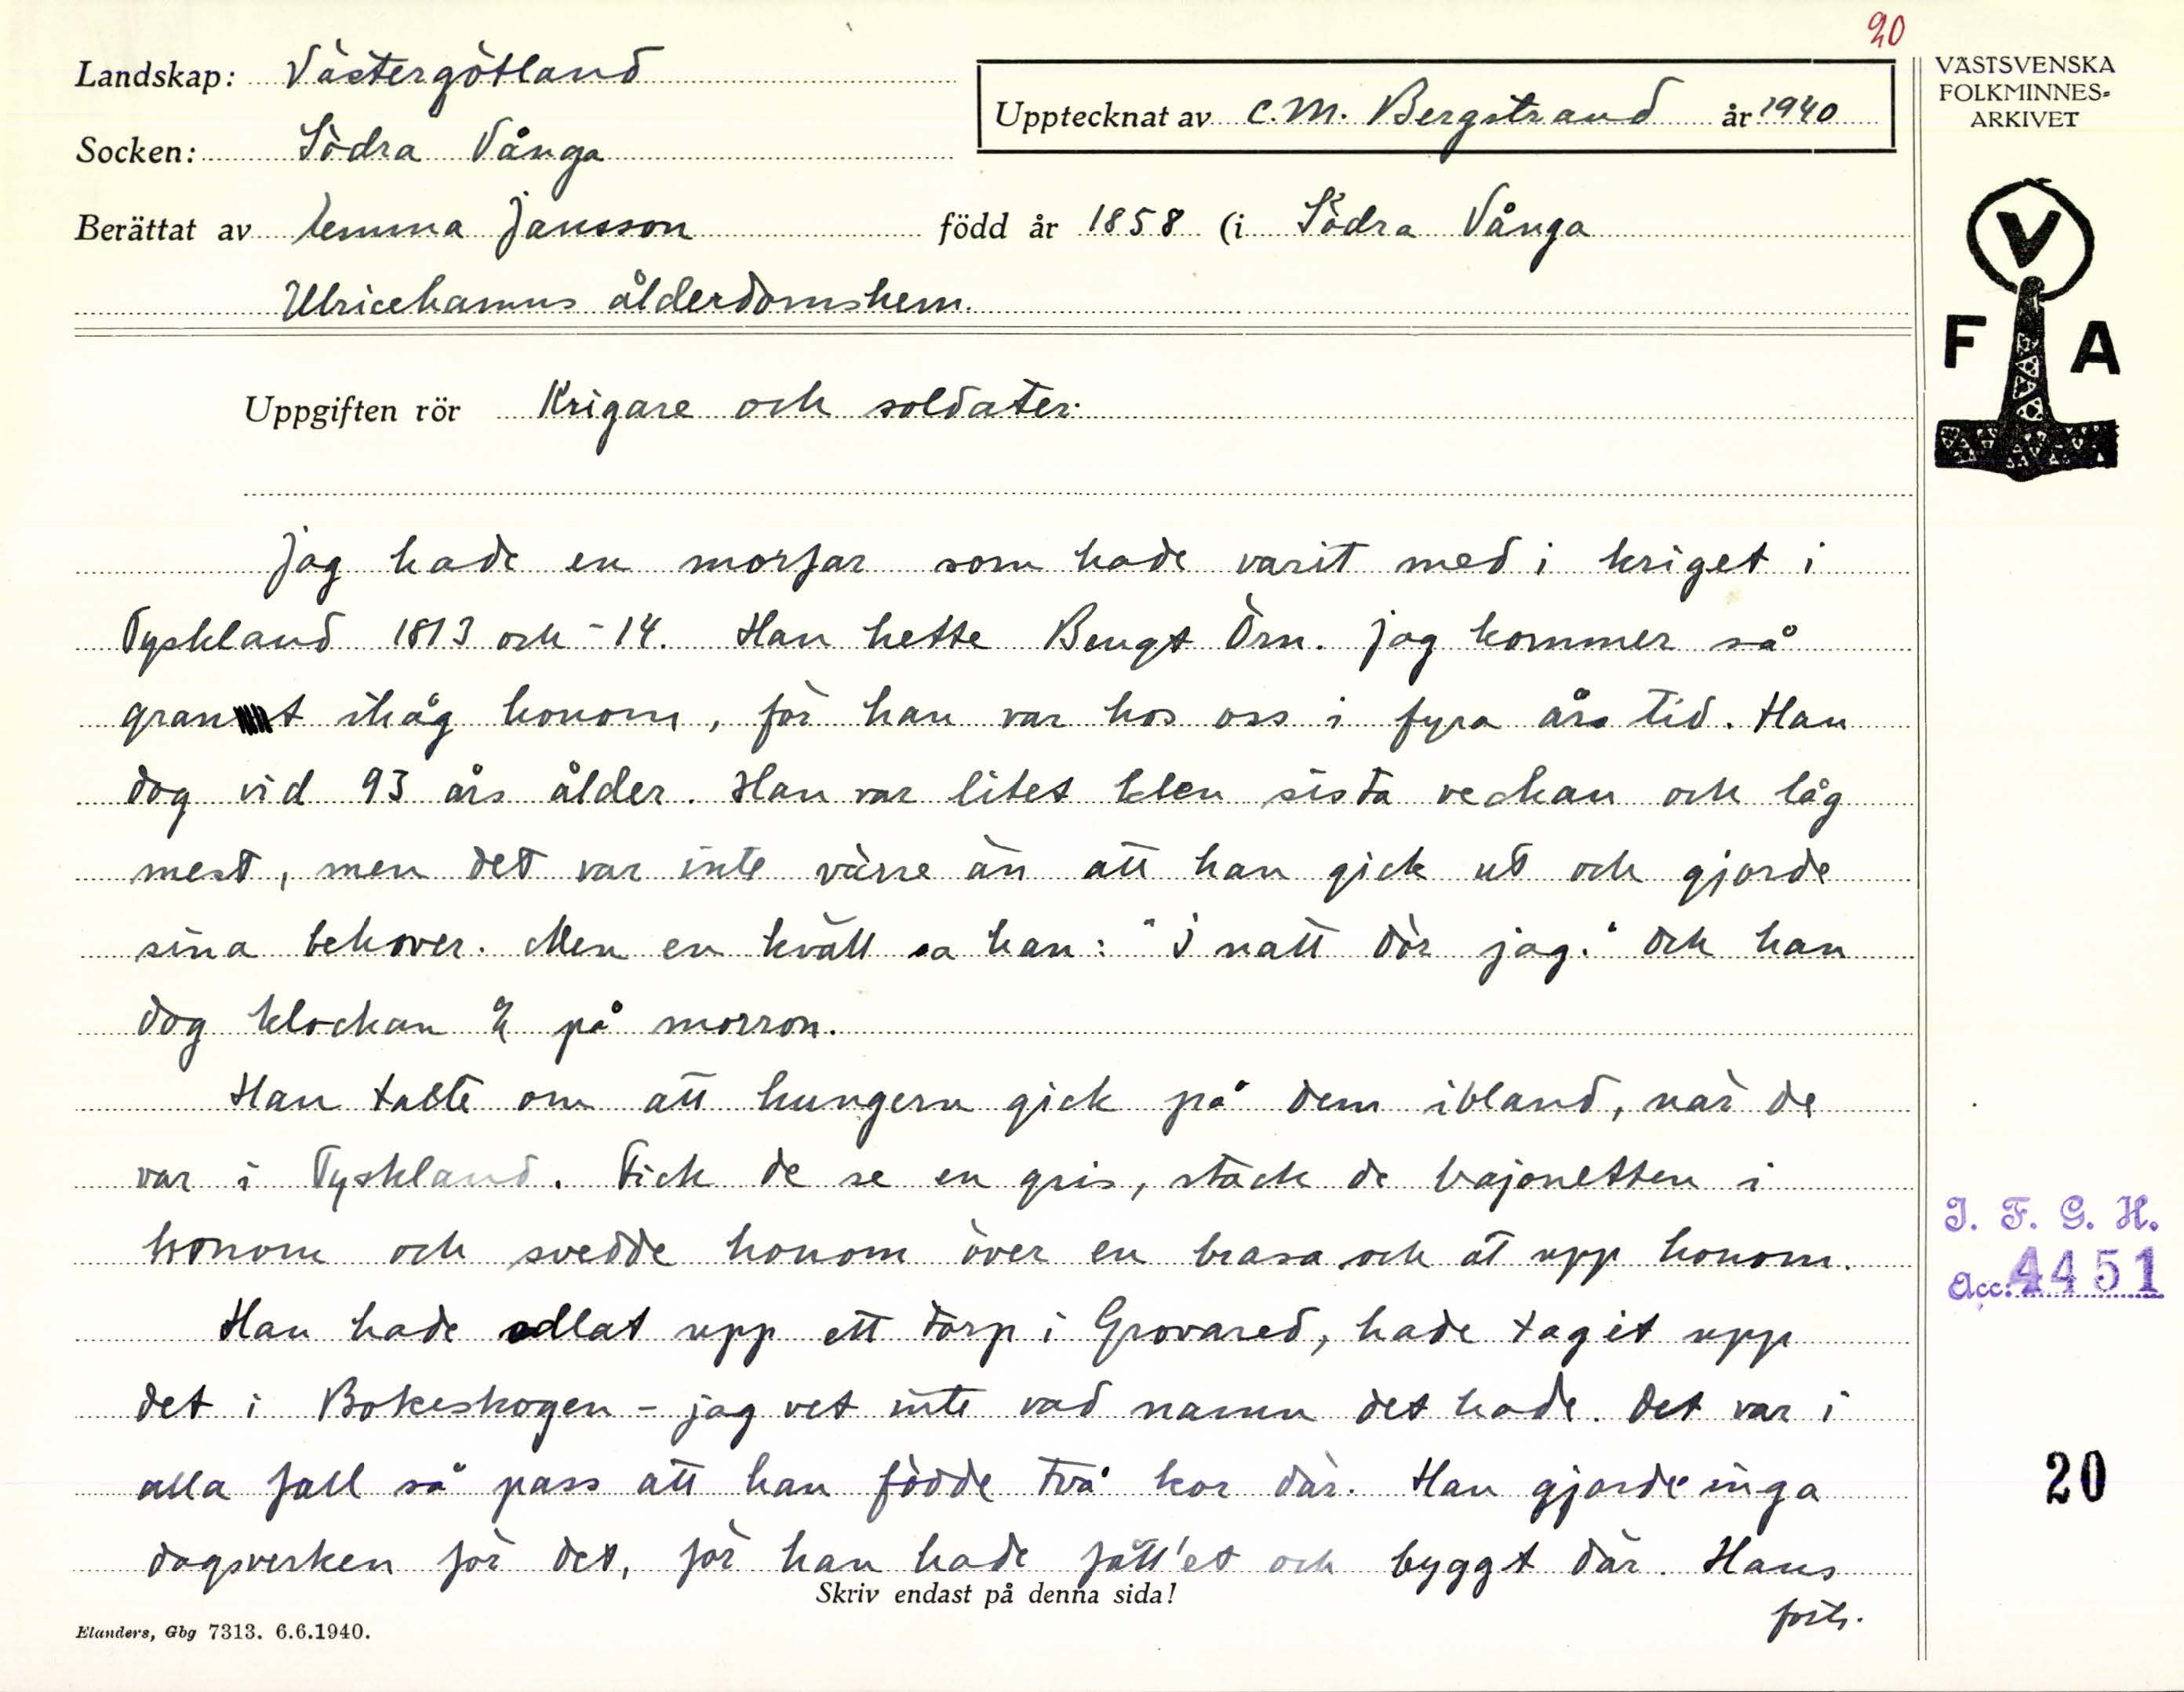 20
Landskap: Västergötland
Socken: Södra Vånga
Upptecknat av C.M. Bergstrand år 1940
Berättat av Emma Jansson född år 1858 (i Södra Vånga
Ulricehamns ålderdomshem.
Uppgiften rör Krigare och soldater.
Jag hade en morfar som hade varit med i kriget i
Tyskland 1813 och -14. Han hette Bengt Örn. Jag kommer så
grant ihåg honom, för han var hos oss i fyra års tid. Han
dog vid 93 års ålder. Han var litet klen sista veckan och låg
mest, men det var inte värre än att han gick ut och gjorde
sina behover. Men en kväll sa han: "I natt dör jag." Och han
dog klockan 2 på morron.
Han talte om att hungern gick på dem ibland, när de
var i Tyskland. Fick de se en gris, stack de bajonetten i
honom och svedde honom över en brasa och åt upp honom.
Han hade odlat upp ett torp i Grovared, hade tagit upp
det i Bokeskogen - jag vet inte vad namn det hade. Det var i
alla fall så pass att han födde två kor där. Han gjorde inga
dagsverken för det, för han hade fått'et och byggt där. Hans
forts.
Skriv endast på denna sida!
Elanders, Gbg 7313. 6.6.1940.
VÄSTSVENSKA
FOLKMINNES-
ARKIVET
V
F A
I. F. G. H.
Acc. 4451
20